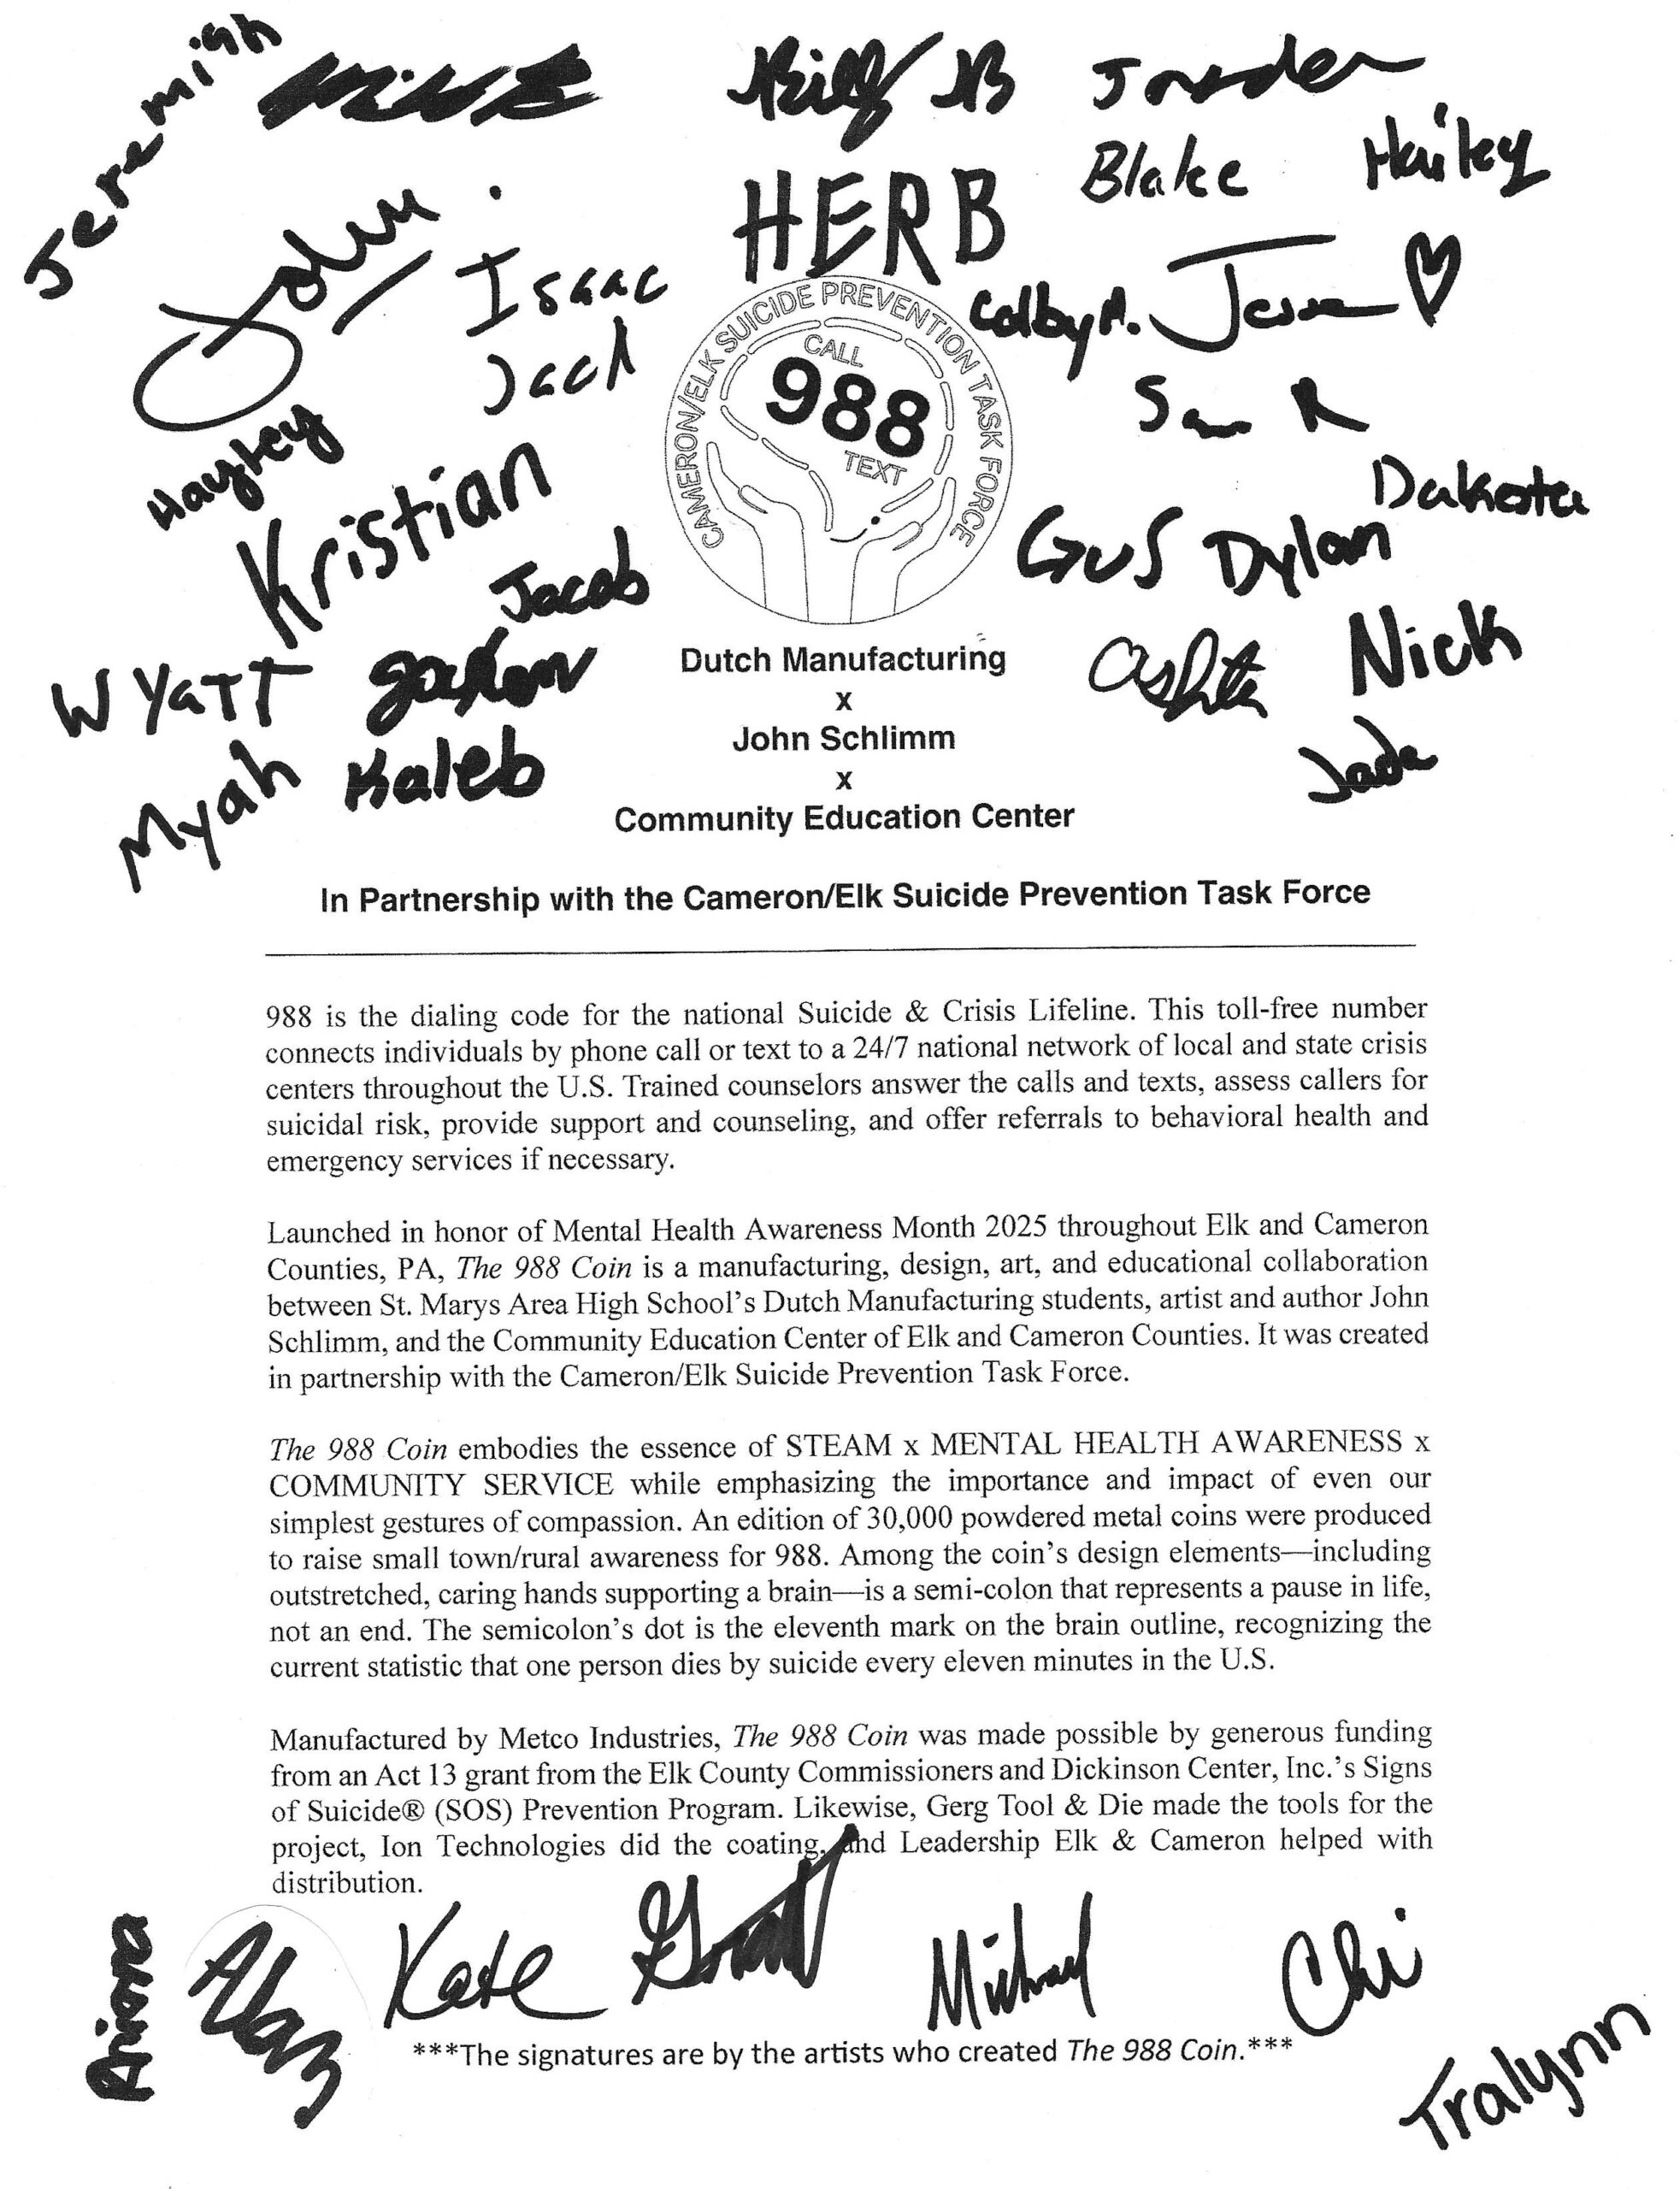 Jeremiah
Jrader
Blake
Hailey
HERB
John
Isaac
Jack
Colby A.
Jesse
Sam R
Hayley
Kristian
Jacob
CAMERON/ELK SUICIDE PREVENTION TASK FORCE
CALL
988
TEXT
Dakota
GUS
Dylan
Wyatt
Jaxon
Nick
Myah
Kaleb
Jade
Dutch Manufacturing
x
John Schlimm
x
Community Education Center
In Partnership with the Cameron/Elk Suicide Prevention Task Force
988 is the dialing code for the national Suicide & Crisis Lifeline. This toll-free number
connects individuals by phone call or text to a 24/7 national network of local and state crisis
centers throughout the U.S. Trained counselors answer the calls and texts, assess callers for
suicidal risk, provide support and counseling, and offer referrals to behavioral health and
emergency services if necessary.
Launched in honor of Mental Health Awareness Month 2025 throughout Elk and Cameron
Counties, PA, The 988 Coin is a manufacturing, design, art, and educational collaboration
between St. Marys Area High School's Dutch Manufacturing students, artist and author John
Schlimm, and the Community Education Center of Elk and Cameron Counties. It was created
in partnership with the Cameron/Elk Suicide Prevention Task Force.
The 988 Coin embodies the essence of STEAM x MENTAL HEALTH AWARENESS x
COMMUNITY SERVICE while emphasizing the importance and impact of even our
simplest gestures of compassion. An edition of 30,000 powdered metal coins were produced
to raise small town/rural awareness for 988. Among the coin's design elements—including
outstretched, caring hands supporting a brain—is a semi-colon that represents a pause in life,
not an end. The semicolon's dot is the eleventh mark on the brain outline, recognizing the
current statistic that one person dies by suicide every eleven minutes in the U.S.
Manufactured by Metco Industries, The 988 Coin was made possible by generous funding
from an Act 13 grant from the Elk County Commissioners and Dickinson Center, Inc.'s Signs
of Suicide® (SOS) Prevention Program. Likewise, Gerg Tool & Die made the tools for the
project, Ion Technologies did the coating, and Leadership Elk & Cameron helped with
distribution.
Ariana
Kate
Grant
Michael
Chi
***The signatures are by the artists who created The 988 Coin.***
Tralynn